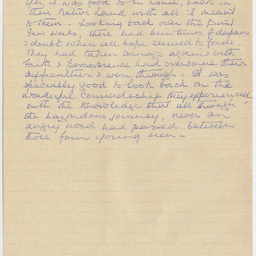 Yes it was good to be home, back in
their Native Land with all it meant
to them. Looking back over the past
few weeks, there had been times of despair
& doubt when all hope seemed to fade.
They had then courage, again with
faith & perseverance had overcome their
difficulties & won through. It was
specially good to look back on the
wonderful Comradeship they experienced
with the knowledge that all through
the hazardous journey, never an
angry word had passed between
those four young men —